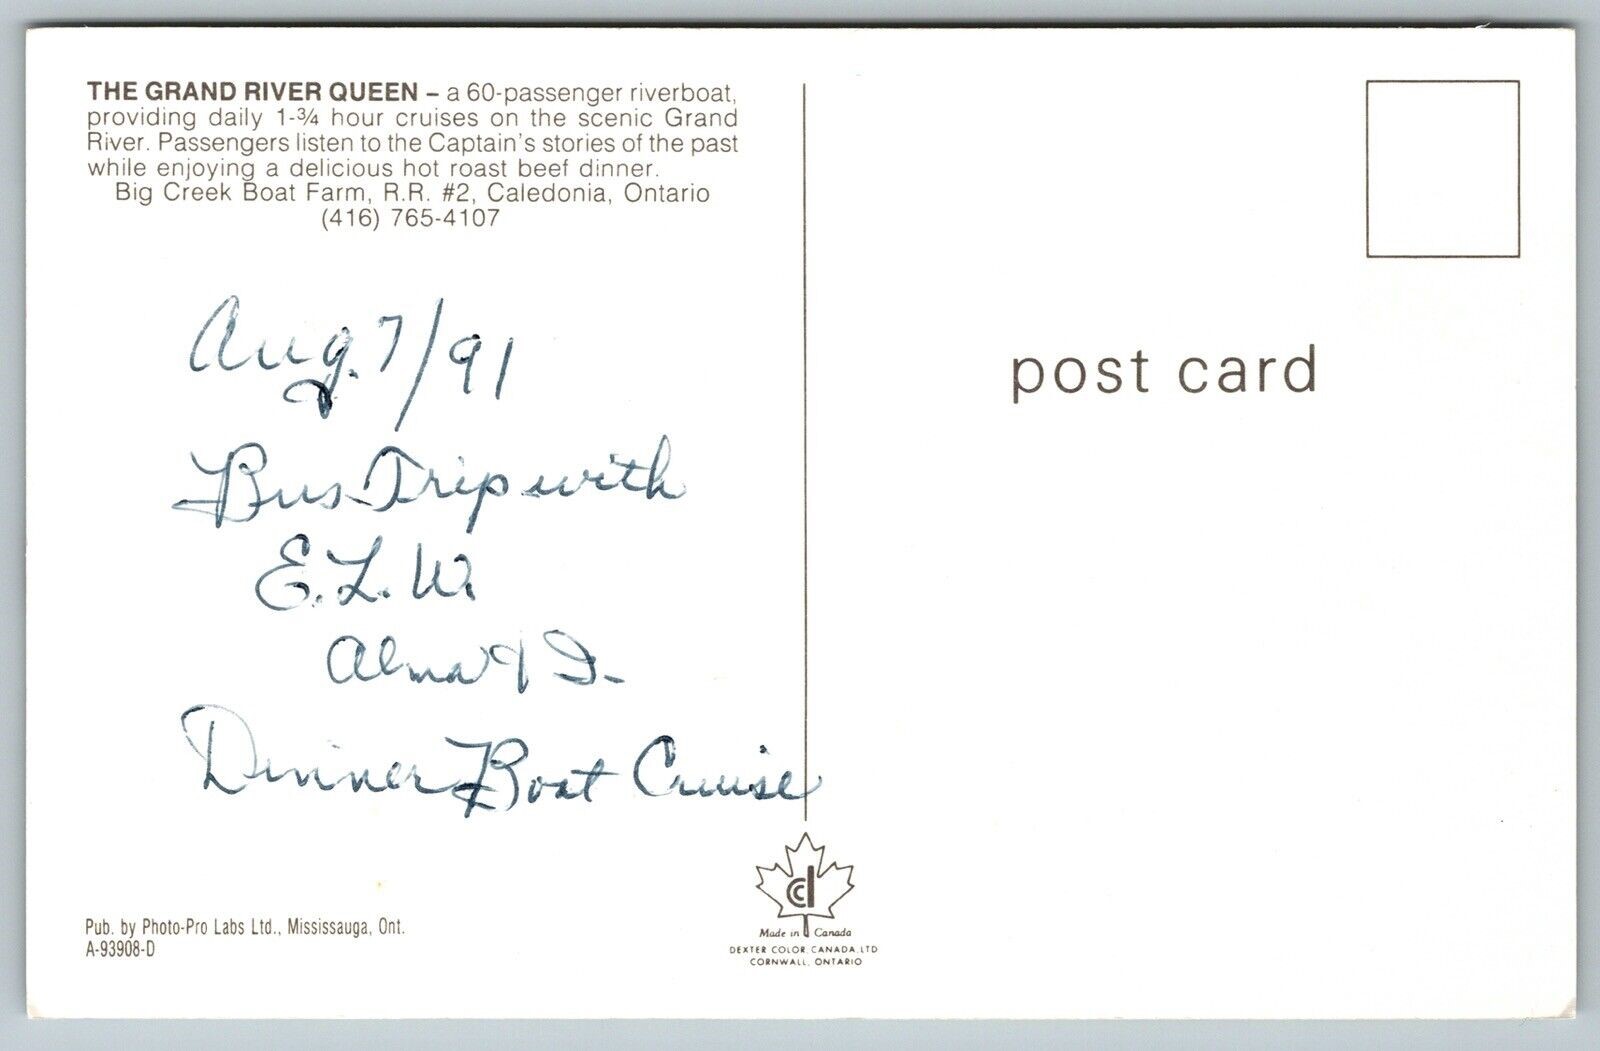 THE GRAND RIVER QUEEN – a 60-passenger riverboat,
providing daily 1-¾ hour cruises on the scenic Grand
River. Passengers listen to the Captain's stories of the past
while enjoying a delicious hot roast beef dinner.
Big Creek Boat Farm, R.R. #2, Caledonia, Ontario
(416) 765-4107
Aug. 7/91
Bus Trip with
E.L.W.
Alma &
Dinner Boat Cruise
Pub. by Photo-Pro Labs Ltd., Mississauga, Ont.
A-93908-D
post card
Made in Canada
DEXTER COLOR CANADA LTD
CORNWALL, ONTARIO